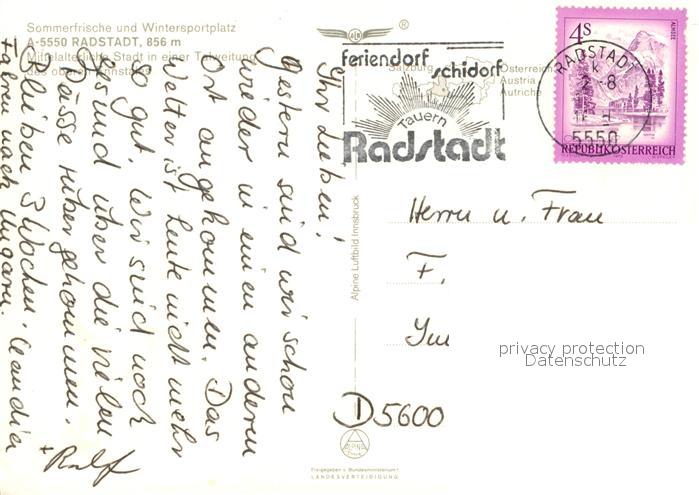 Sommerfrische und Wintersportplatz
A-5550 RADSTADT, 856 m
Mittelalterliche Stadt in einer Talweitung
des oberen Ennstales
Ihr Lieben!
Gestern sind wir schon
wieder in einen anderen
Ort angekommen. Das
Wetter ist heute nicht mehr
so gut. Wir sind noch
sind über die vielen
Pässe rüber gekommen.
Bleiben 3 Wochen.
Fahren nach Ungarn.
Claudia
+ Ralf
Alpine Luftbild Innsbruck
®
feriendorf
schidorf
Tauern
Radstadt
Salzburg
Österreich
Austria
Autriche
RADSTADT
5550
4S
ALMSEE
REPUBLIK ÖSTERREICH
Herrn u. Frau
F.
Im
privacy protection
Datenschutz
D 5600
ALPINE
Freigegeben v. Bundesministerium f.
LANDESVERTEIDIGUNG